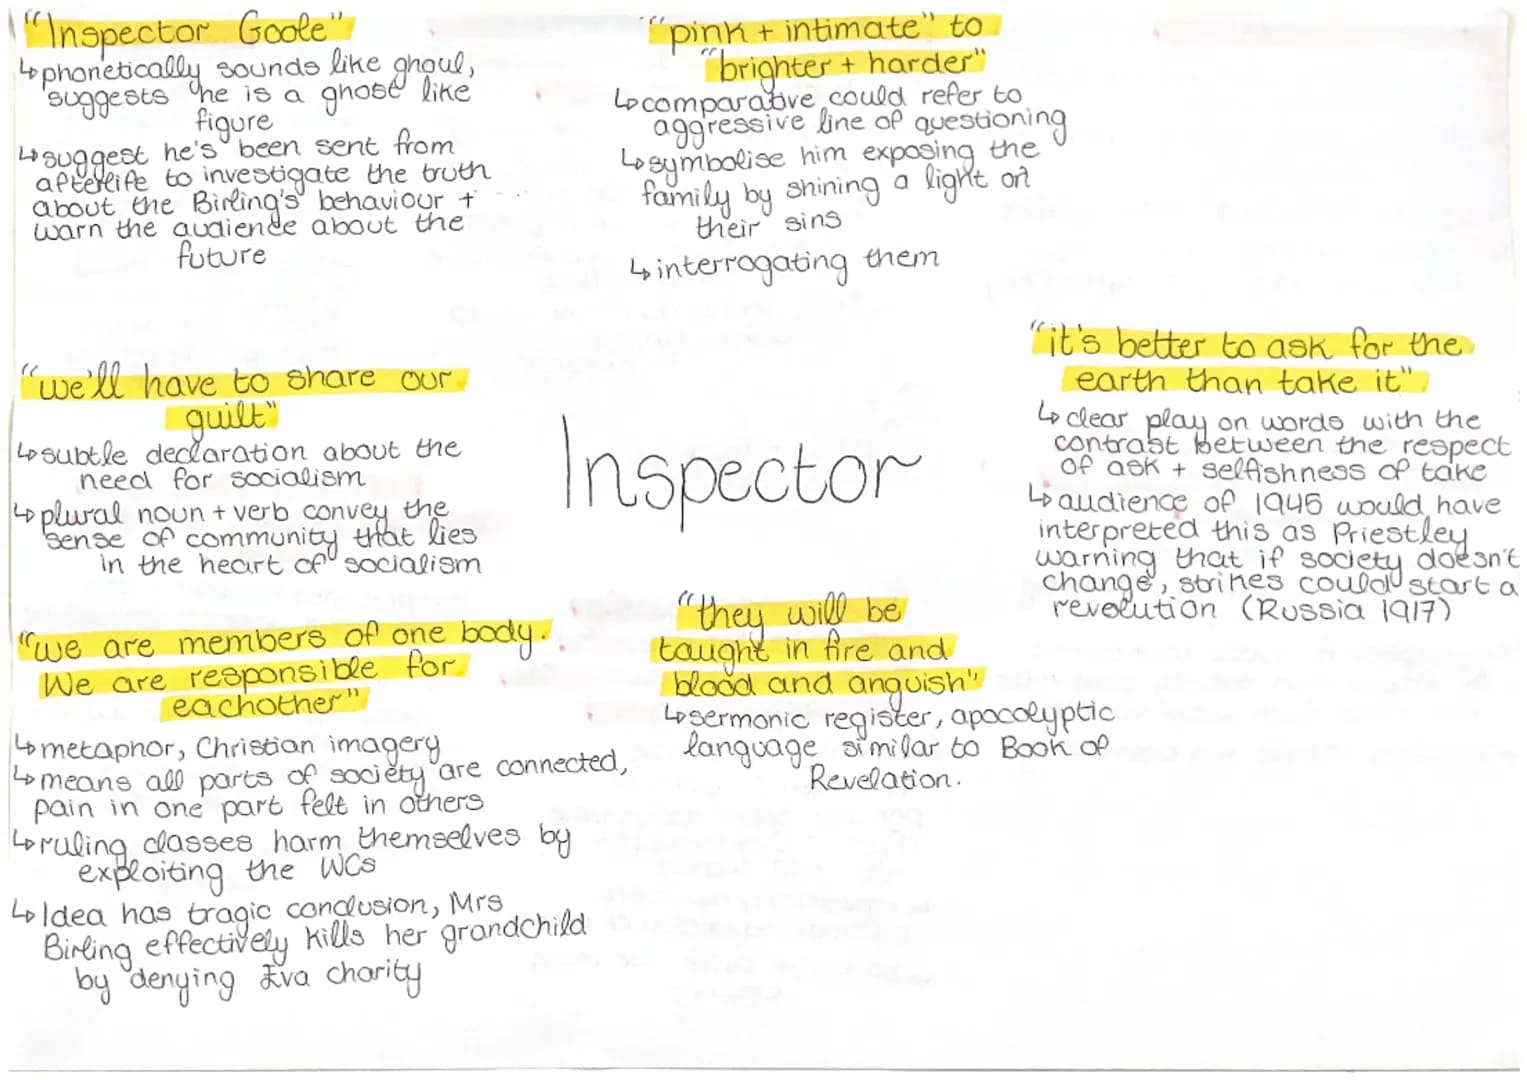 "Inspector Goole"
↳phonetically sounds like ghoul,
suggests he is a ghost like
figure
↳suggest he's been sent from
afterlife to investigate the truth
about the Birling's behaviour +
warn the audience about the
future
"pink + intimate" to
"brighter + harder"
↳comparative could refer to
aggressive line of questioning
↳symbolise him exposing the
family by shining a light on
their sins
↳interrogating them
"we'll have to share our
guilt"
↳subtle declaration about the
need for socialism
↳plural noun + verb convey the
sense of community that lies
in the heart of socialism
Inspector
"it's better to ask for the
earth than take it"
↳clear play on words with the
contrast between the respect
of ask + selfishness of take
↳audience of 1945 would have
interpreted this as Priestley
warning that if society doesn't
change, strikes could start a
revolution (Russia 1917)
"we are members of one body.
We are responsible for
eachother"
↳metaphor, Christian imagery
↳means all parts of society are connected,
pain in one part felt in others
↳ruling classes harm themselves by
exploiting the WCs
↳Idea has tragic conclusion, Mrs
Birling effectively kills her grandchild
by denying Eva charity
"they will be
taught in fire and
blood and anguish"
↳sermonic register, apocolyptic
language similar to Book of
Revelation.